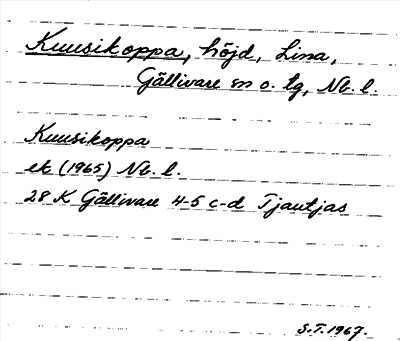 Kuusikoppa, höjd, Lina,
Gällivare sn o. tg, Nb. l.
Kuusikoppa
ek (1965) Nb. l.
28 K Gällivare 4-5 c-d Tjautjas
S.T. 1967.